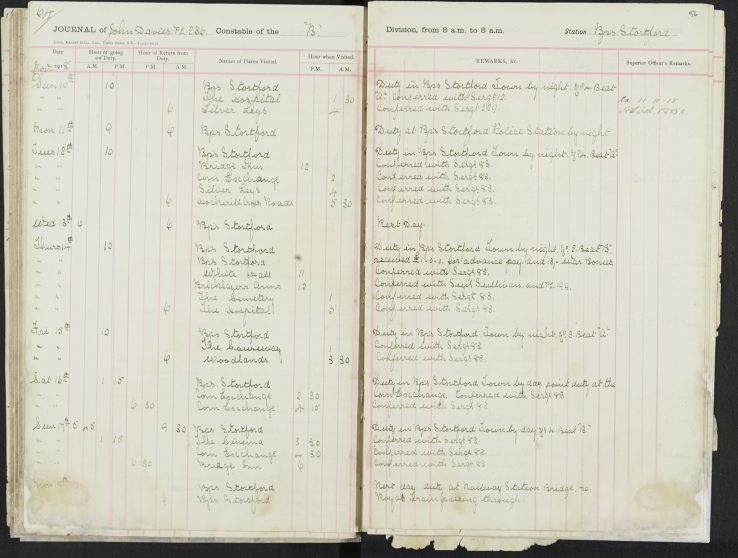 JOURNAL of John Davies P.C. 236. Constable of the "B" Division, from 8 a.m. to 8 a.m. Station Bps Stortford
Date Hour of going on Duty. Hour of Return from Duty. Names of Places Visited. Hour when Visited. REMARKS, &c. Superior Officer's Remarks.
A.M. P.M. A.M. P.M. P.M. A.M.
Nov 1918
Sun 10th 10 Bps Stortford Duty in Bps Stortford Town by night. No 4 Beat
" " The Hospital 1 30 "A" Conferred with Sergt 12.
" " 6 Silver Leys 4 Conferred with Sergt 229.
Mon 11th 9 6 Bps Stortford Duty at Bps Stortford Police Station by night
Tues 12th 10 Bps Stortford Duty in Bps Stortford Town by night. No 4 Beat "A"
" " Bridge Inn 12 Conferred with Sergt 83.
" " Corn Exchange 2 Conferred with Sergt 83.
" " Silver Leys 4 Conferred with Sergt 83.
" " 6 Hockerill Cross Roads 5 30 Conferred with Sergt 83.
Wed 13th 4 6 Bps Stortford Rest Day.
Thurs 14th 10 Bps Stortford Duty in Bps Stortford Town by night. No 3. Beat "B"
" " Bps Stortford received £1-0-0. for advance pay and 13/- War Bonus
" " White Hall 11 Conferred with Sergt 83.
" " Bricklayers Arms 12 Conferred with Supt Sullivan and P.C. 199.
" " The Cemetery 1 Conferred with Sergt 83.
" " 6 The Hospital 5 Conferred with Sergt 83.
Fri 15th 10 Bps Stortford Duty in Bps Stortford Town by night. No 3 Beat "A"
" " The Causeway 1 Conferred with Sergt 83.
" " 6 Woodlands 3 30 Conferred with Sergt 83.
Sat 16th 1 15 Bps Stortford Duty in Bps Stortford Town by day point duty at the
" " Corn Exchange 2 30 Corn Exchange. Conferred with Sergt 83.
" " 6 30 Corn Exchange 4 15 Conferred with Sergt 83.
Sun 17th 5 45 9 30 Bps Stortford Duty in Bps Stortford Town by day No 4 Beat "B"
" " 1 15 The Cinema 3 30 Conferred with Sergt 83.
" " Corn Exchange 4 30 Conferred with Sergt 83.
" " 6 30 Bridge Inn 6 Conferred with Sergt 83
Mon Bps Stortford Rest day duty at Railway Station Bridge, re.
6 Bps Stortford Royal train passing through